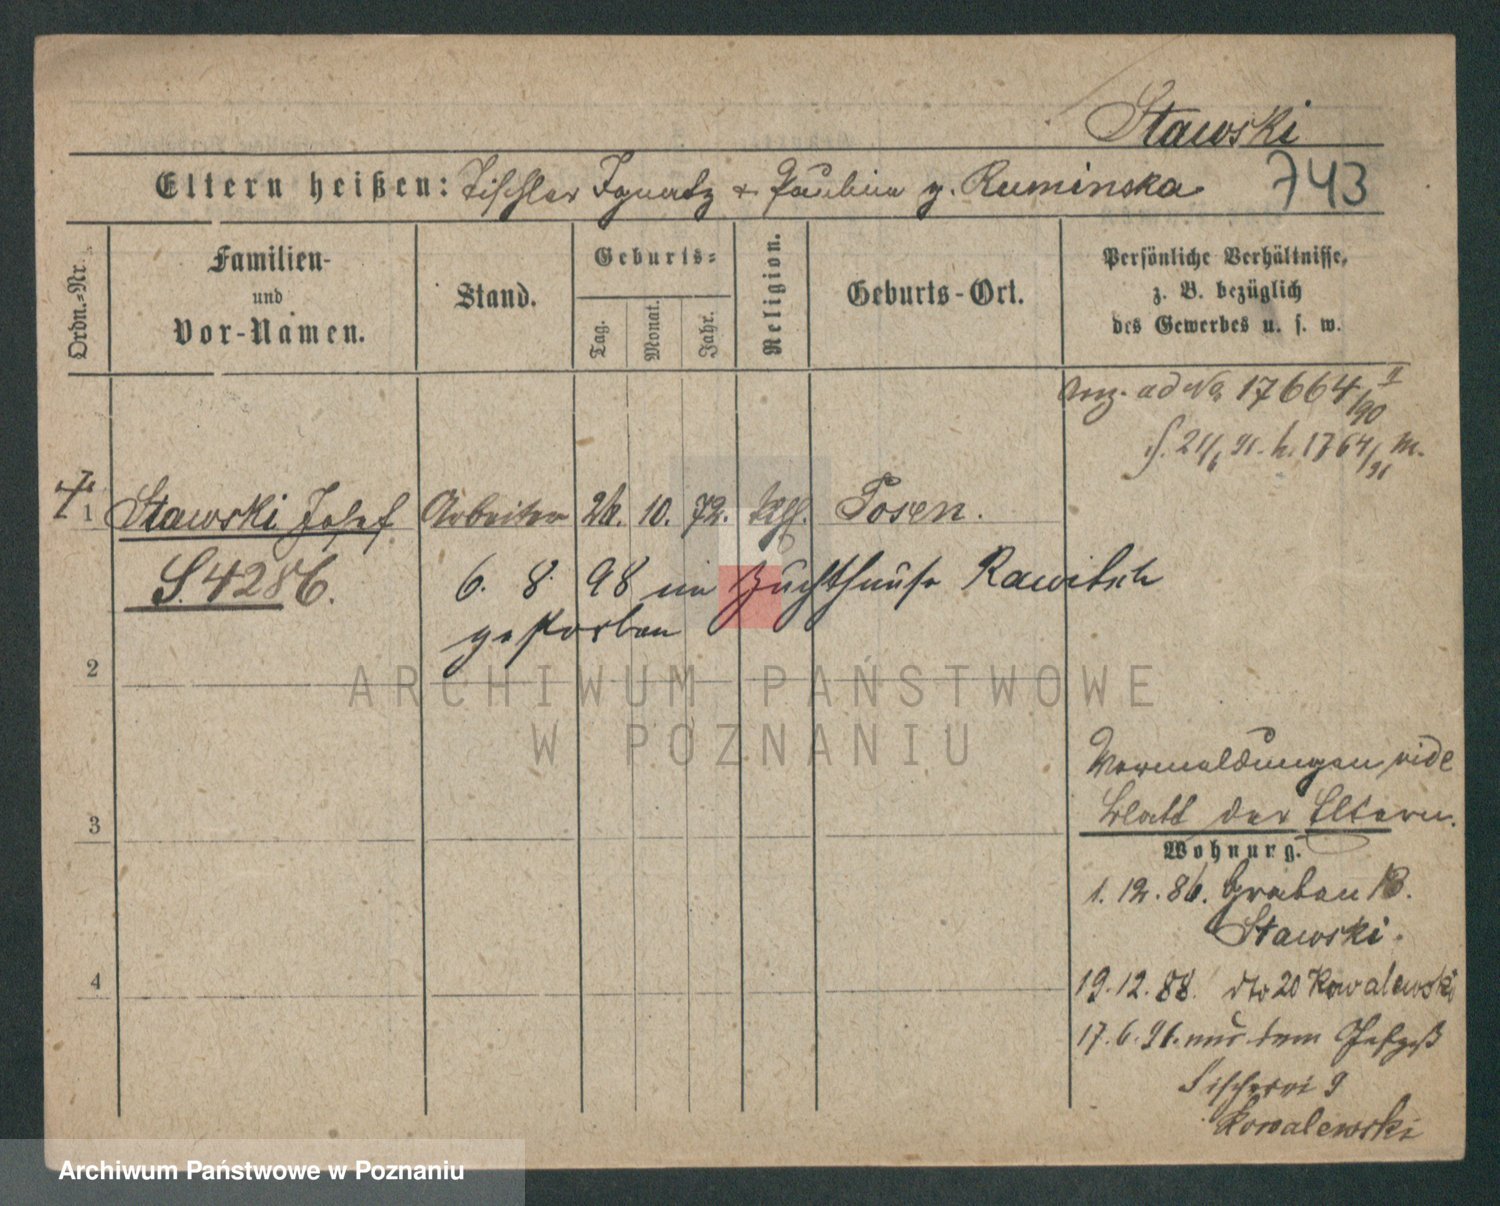 Stawski
Eltern heißen: Tischler Ignatz & Paulina g. Ruminska 743
Ordn.-Nr.
Familien-
und
Vor-Namen.
Stand.
Geburts-
Tag.
Monat.
Jahr.
Religion.
Geburts-Ort.
Persönliche Verhältnisse,
z. B. bezüglich
des Gewerbes u. s. w.
ad No 17664 II/90
1764/91
1 Stawski Josef Arbeiter 26. 10. 72. kth. Posen.
S. 4286. 6. 8. 98 im Zuchthause Rawitsch
gestorben
2
ARCHIWUM PAŃSTWOWE
W POZNANIU
Vormeldungen vide
Blatt der Eltern.
3
Wohnung.
1. 12. 86. Graben 13.
Stawski.
4
19. 12. 88. dto 20 Kowalewski
17. 6. 91. aus dem Gefgß
Fischerei 9
Kowalewski
Archiwum Państwowe w Poznaniu